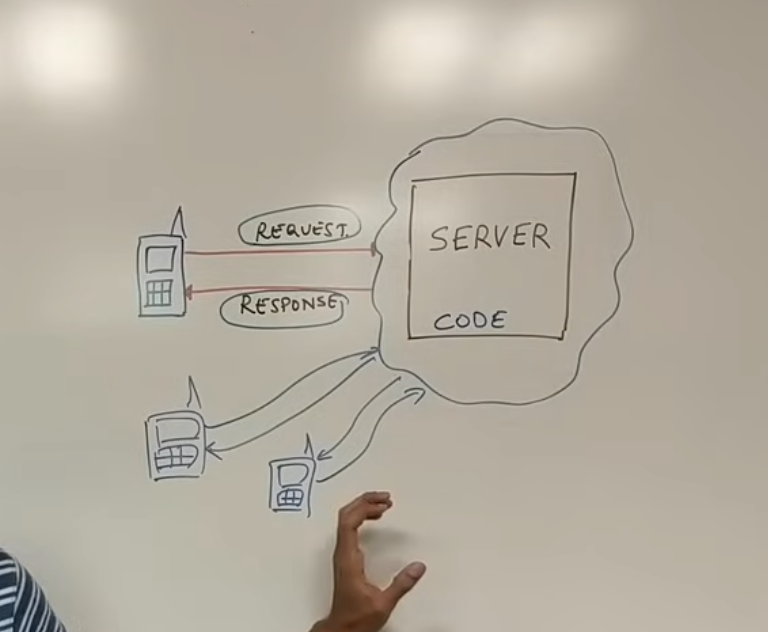 REQUEST
RESPONSE
SERVER
CODE